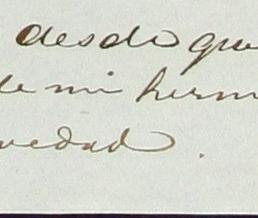 desde que
de mi herm
vedad.